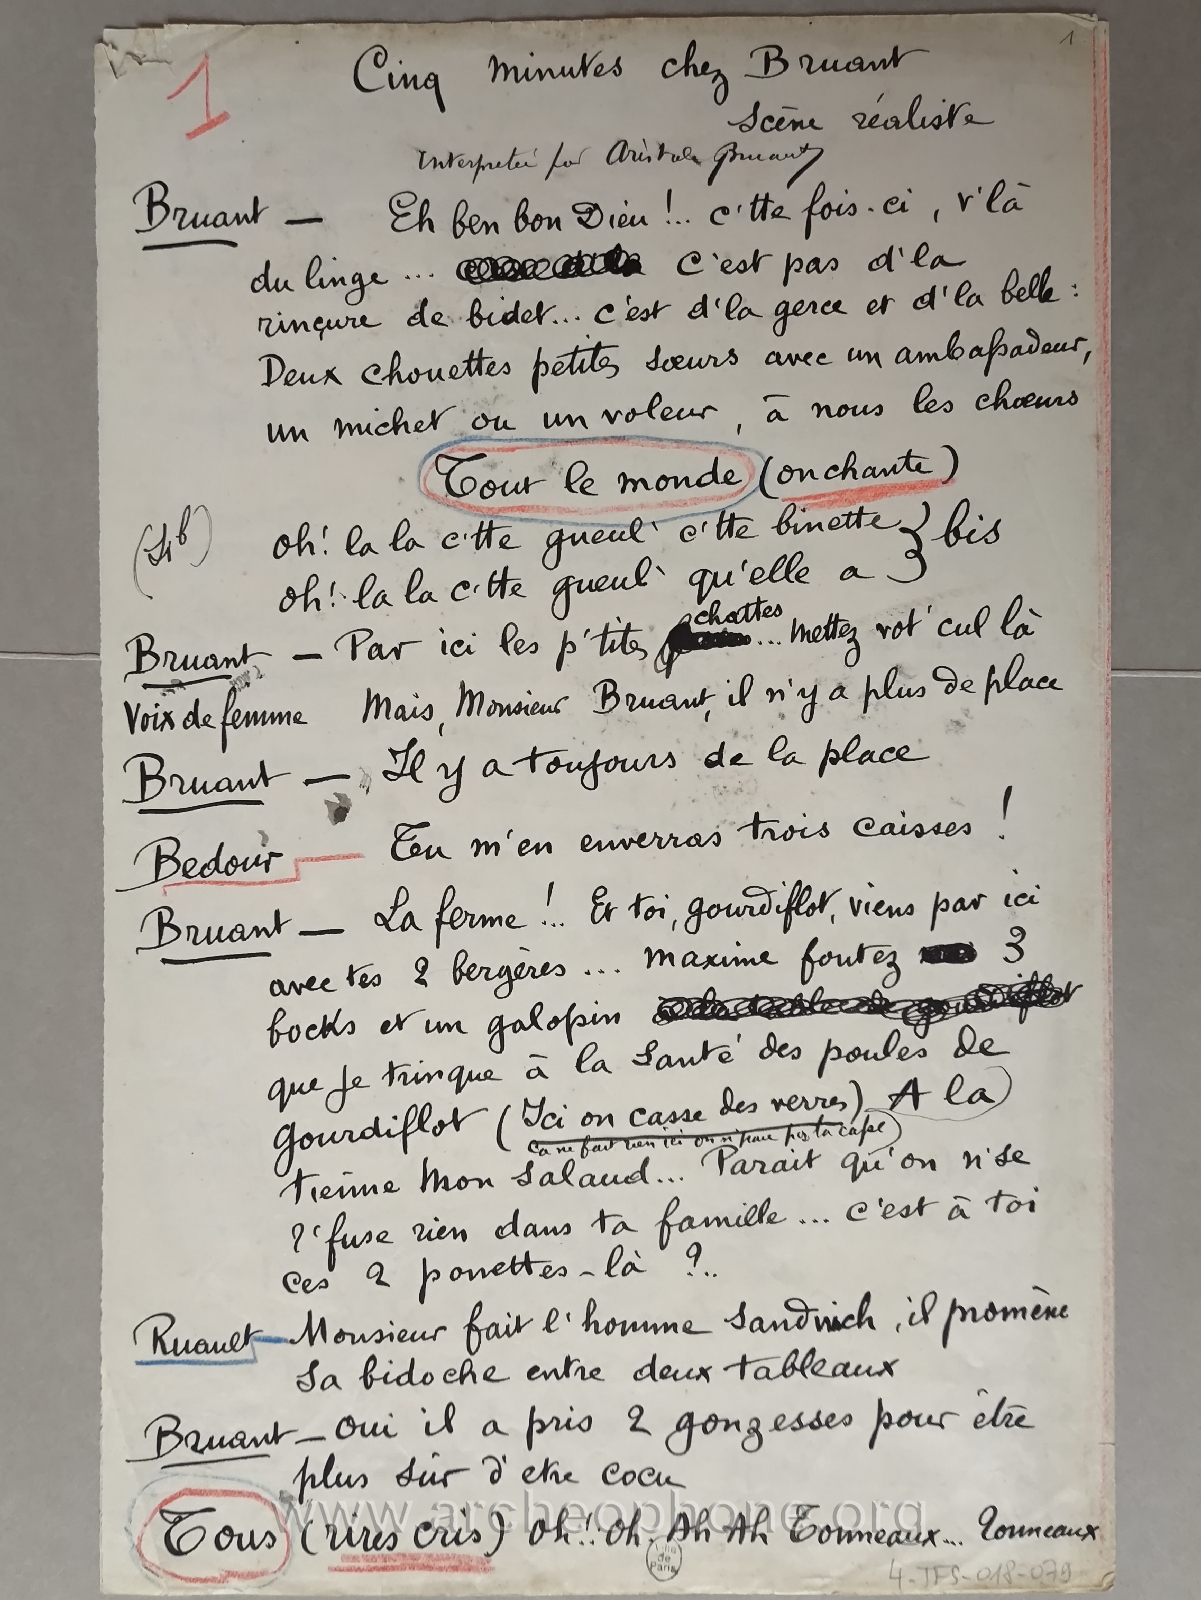 1
1
Cinq minutes chez Bruant
Scène réaliste
Interpretée par Aristide Bruant
Bruant — Eh ben bon Dieu !.. c'tte fois-ci, v'là
du linge ... c'est pas d'la
rinçure de bidet... c'est d'la gerce et d'la belle :
Deux chouettes petites sœurs avec un ambassadeur,
un michet ou un voleur, à nous les chœurs
Tout le monde (on chante)
Oh! la la c'tte gueul' c'tte binette } bis
Oh! la la c'tte gueul' qu'elle a
Bruant — Par ici les p'tites chattes ... Mettez vot' cul là
Voix de femme Mais, Monsieur Bruant, il n'y a plus de place
Bruant — Il y a toujours de la place
Bedour — Tu m'en enverras trois caisses !
Bruant — La ferme !.. Et toi, gourdiflot, viens par ici
avec tes 2 bergères ... maxime foutez 3
bocks et un galopin
que je trinque à la santé des poules de
gourdiflot (Ici on casse des verres) A la
ça ne fait rien ici on n'paie pas la casse)
tienne Mon salaud... Parait qu'on n'se
r'fuse rien dans ta famille ... c'est à toi
ces 2 ponettes-là ?..
Ruault — Monsieur fait l'homme sandwich, il promène
sa bidoche entre deux tableaux
Bruant — Oui il a pris 2 gonzesses pour être
plus sûr d'etre cocu
www.archeophone.org
Tous (rires cris) Oh!. Oh. Ah Ah Tonneaux... Tonneaux
de
Paris
4-TFS-018-079